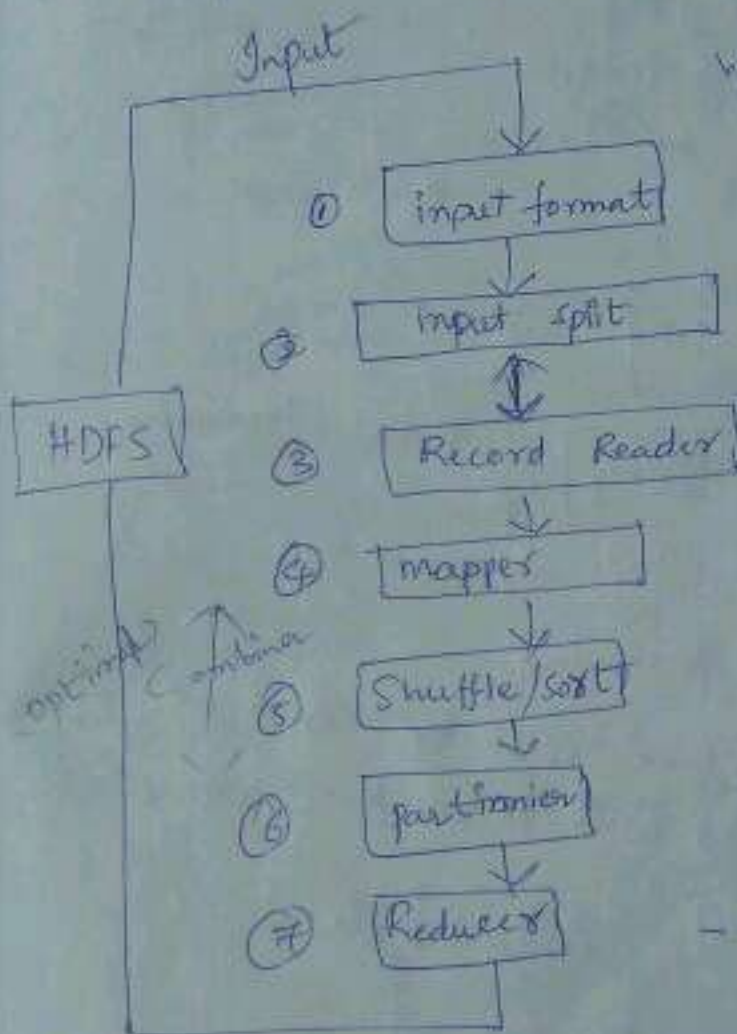 Input
① input format
② input split
HDFS
③ Record Reader
④ mapper
Combiner
⑤ Shuffle/sort
⑥ partimnier
⑦ Reducer
-